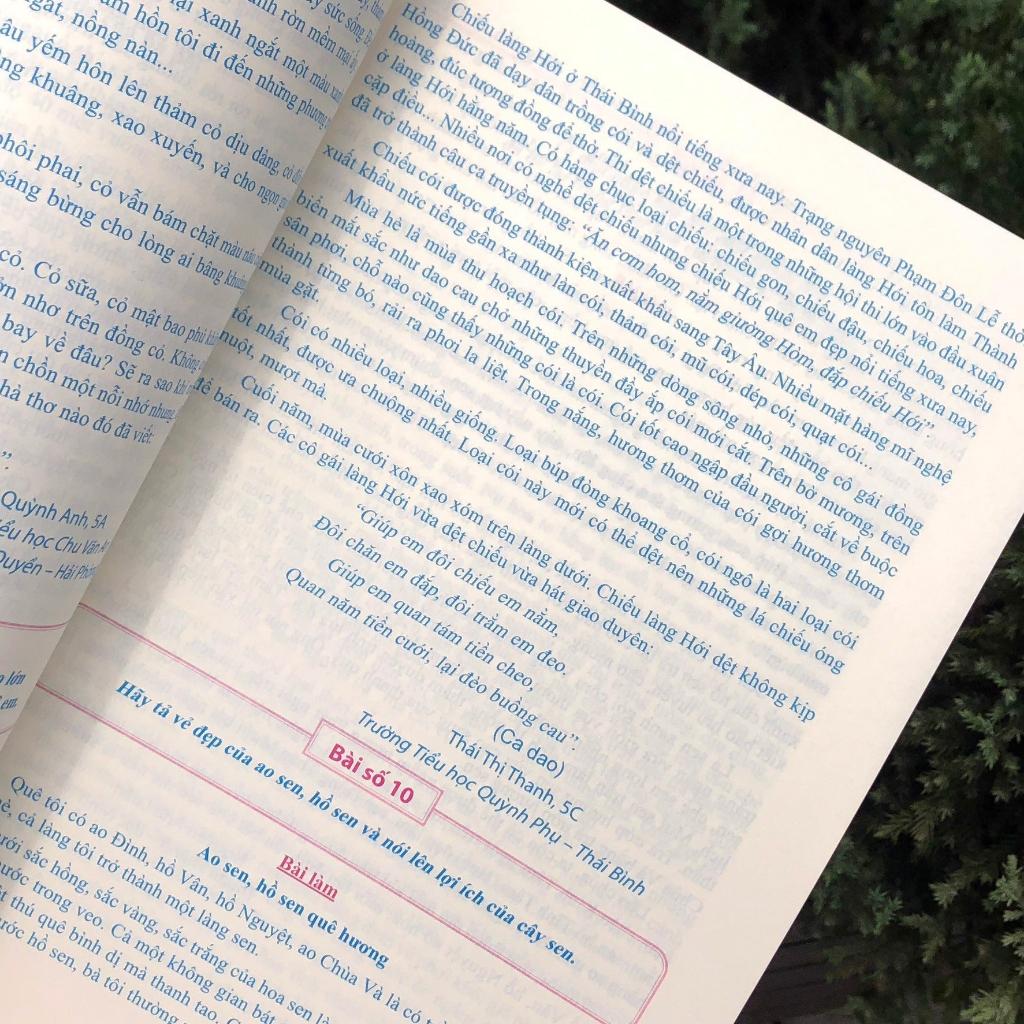 ngát, nồng nàn...
âm hồn tôi đi đến những phương
âu yếm hôn lên thảm cỏ dịu dàng, cỏ
khuâng, xao xuyến, và cho ngọn
phôi phai, cỏ vẫn bám chặt màu
sáng bừng cho lòng ai bâng khuâng
cỏ. Cỏ sữa, cỏ mật bao phủ
nhơ trên đồng cỏ. Không
bay về đâu? Sẽ ra sao khi
chốn một nỗi nhớ nhung
nhà thơ nào đó đã viết:
Quỳnh Anh, 5A
Tiểu học Chu Văn
Quyền – Hải Phòng
lớn
em.
Chiếu làng Hới ở Thái Bình nổi tiếng xưa nay. Trạng nguyên Phạm Đôn Lễ thời
Hồng Đức đã dạy dân trồng cói và dệt chiếu, được nhân dân làng Hới tôn làm Thành
hoàng, đúc tượng đồng để thờ. Thi dệt chiếu là một trong những hội thi lớn vào đầu xuân
ở làng Hới hằng năm. Có hàng chục loại chiếu: chiếu gon, chiếu đậu, chiếu hoa, chiếu
cặp điều... Nhiều nơi có nghề dệt chiếu nhưng chiếu Hới, quê em đẹp nổi tiếng xưa nay,
đã trở thành câu ca truyền tụng: "Ăn cơm hom, nằm giường Hòm, đắp chiếu Hới".
Chiếu cói được đóng thành kiện xuất khẩu sang Tây Âu. Nhiều mặt hàng mĩ nghệ
xuất khẩu nức tiếng gần xa như làn cói, thảm cói, mũ cói, dép cói, quạt cói...
Mùa hè là mùa thu hoạch cói. Trên những dòng sông nhỏ, những cô gái đồng
biển mắt sắc như dao cau chở những thuyền đầy ắp cói mới cắt. Trên bờ mương, trên
sân phơi, chỗ nào cũng thấy những cói là cói. Cói tốt cao ngập đầu người, cắt về buộc
thành từng bó, rải ra phơi la liệt. Trong nắng, hương thơm của cói gợi hương thơm
mùa gặt.
Cói có nhiều loại, nhiều giống. Loại búp đòng khoang cổ, cói ngô là hai loại cói
tốt nhất, được ưa chuộng nhất. Loại cói này mới có thể dệt nên những lá chiếu óng
muột, mượt mà.
Cuối năm, mùa cưới xôn xao xóm trên làng dưới. Chiếu làng Hới dệt không kịp
để bán ra. Các cô gái làng Hới vừa dệt chiếu vừa hát giao duyên:
"Giúp em đôi chiếu em nằm,
Đôi chăn em đắp, đôi trằm em đeo.
Giúp em quan tám tiền cheo,
Quan năm tiền cưới, lại đèo buồng cau".
(Ca dao)
Thái Thị Thanh, 5C
Trường Tiểu học Quỳnh Phụ – Thái Bình
Bài số 10
Hãy tả vẻ đẹp của ao sen, hồ sen và nói lên lợi ích của cây sen.
Bài làm
Ao sen, hồ sen quê hương
Quê tôi có ao Đình, hồ Vân, hồ Nguyệt, ao Chùa Và là có
hè, cả làng tôi trở thành một làng sen.
sắc hồng, sắc vàng, sắc trắng của hoa sen
nước trong veo. Cả một không gian bát
thú quê bình dị mà thanh tao.
hồ sen, bà tôi thường